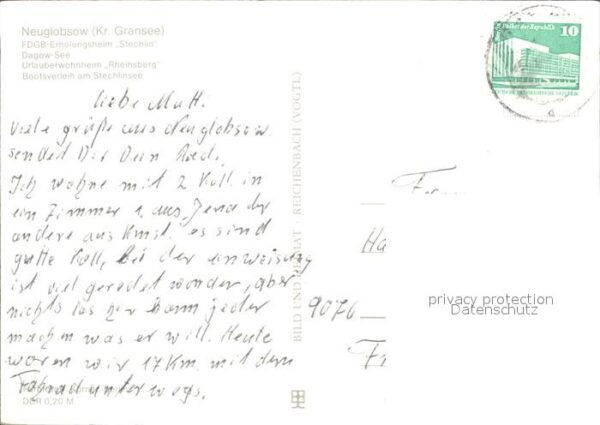 Neuglobsow (Kr. Gransee)
FDGB-Erholungsheim „Stechlin"
Dagow-See
Urlauberwohnheim „Rheinsberg"
Bootsverleih am Stechlinsee
liebe Mutt.
Viele grüße aus Neuglobsow
sendet Dir Dein
Ich wohne mit 2 Koll. in
ein Zimmer 1 aus Jena der
andere aus Kmst. es sind
gutte Koll, bei der einweisung
ist viel geredet wonder, aber
nichts los hir kann jeder
machen was er will. Heute
waren wir 17 Km. mit dem
Fahrad unterwegs.
DDR 0,20 M
BILD UND HEIMAT · REICHENBACH (VOGTL)
Palast der Republik
10
9076
privacy protection
Datenschutz